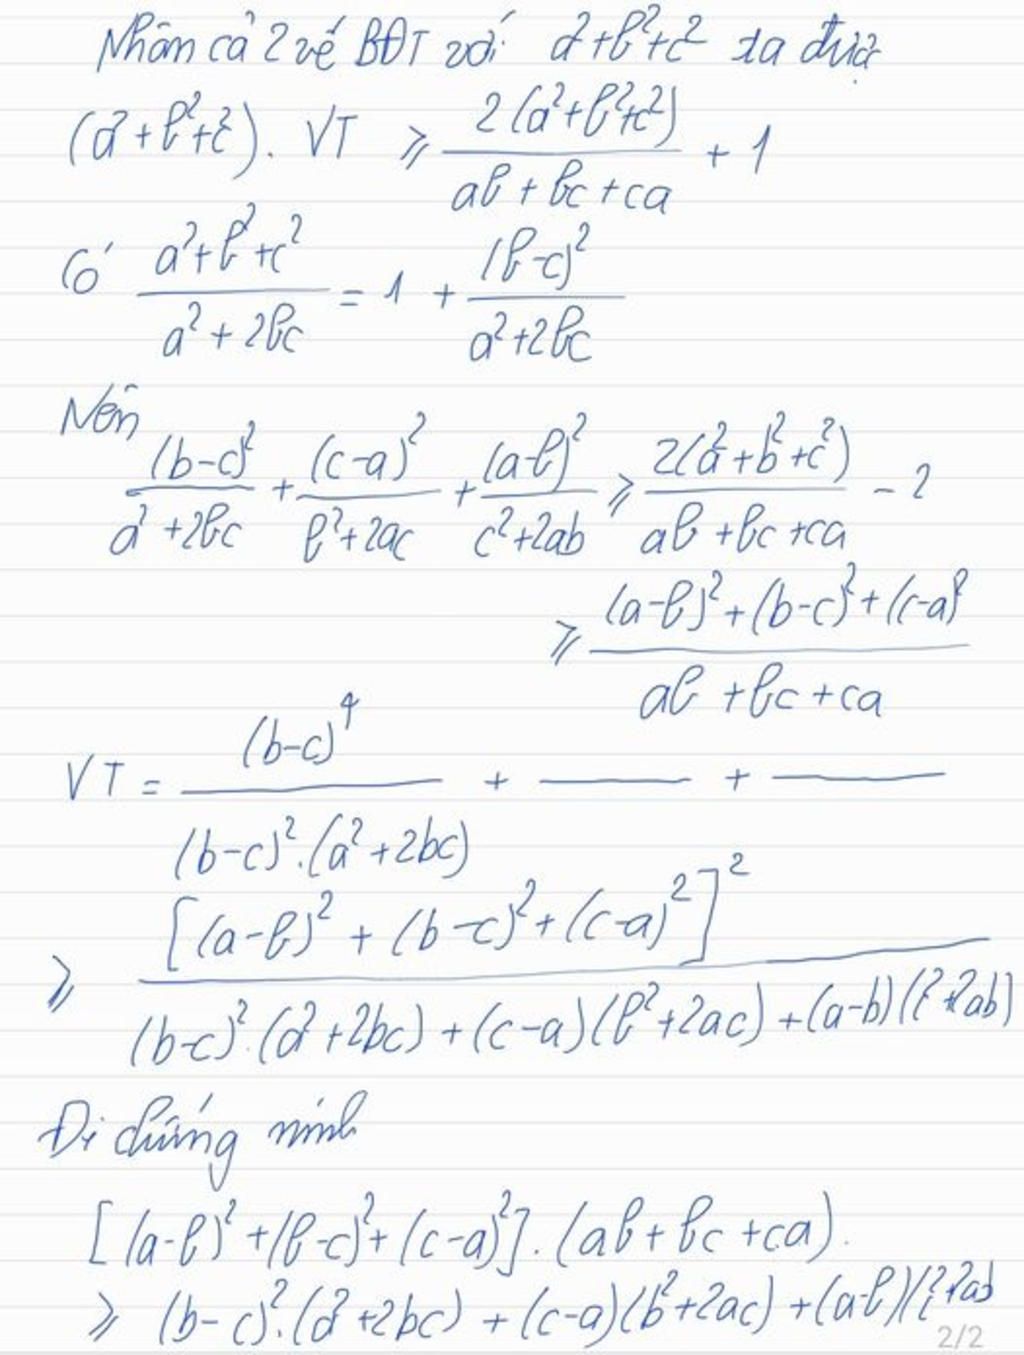 Nhân cả 2 vế BĐT với a²+b²+c² ta được
(a²+b²+c²). VT ≥ 2(a²+b²+c²)/(ab+bc+ca) + 1
Có (a²+b²+c²)/(a²+2bc) = 1 + (b-c)²/(a²+2bc)
Nên
(b-c)²/(a²+2bc) + (c-a)²/(b²+2ac) + (a-b)²/(c²+2ab) ≥ 2(a²+b²+c²)/(ab+bc+ca) - 2
≥ ((a-b)²+(b-c)²+(c-a)²)/(ab+bc+ca)
VT = (b-c)⁴/((b-c)².(a²+2bc)) + — + —
≥ [(a-b)²+(b-c)²+(c-a)²]²/((b-c)².(a²+2bc)+(c-a)(b²+2ac)+(a-b)(c²+2ab))
Đi chứng minh
[(a-b)²+(b-c)²+(c-a)²].(ab+bc+ca).
≥ (b-c)².(a²+2bc)+(c-a)(b²+2ac)+(a-b)(c²+2ab
2/2